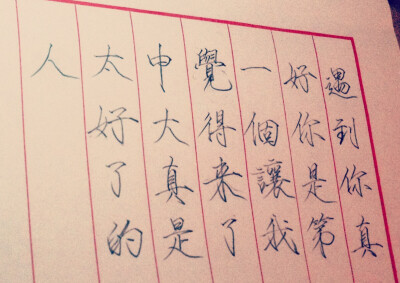 遇到你真
好你是第
一個讓我
覺得来了
申大真是
太好了的
人